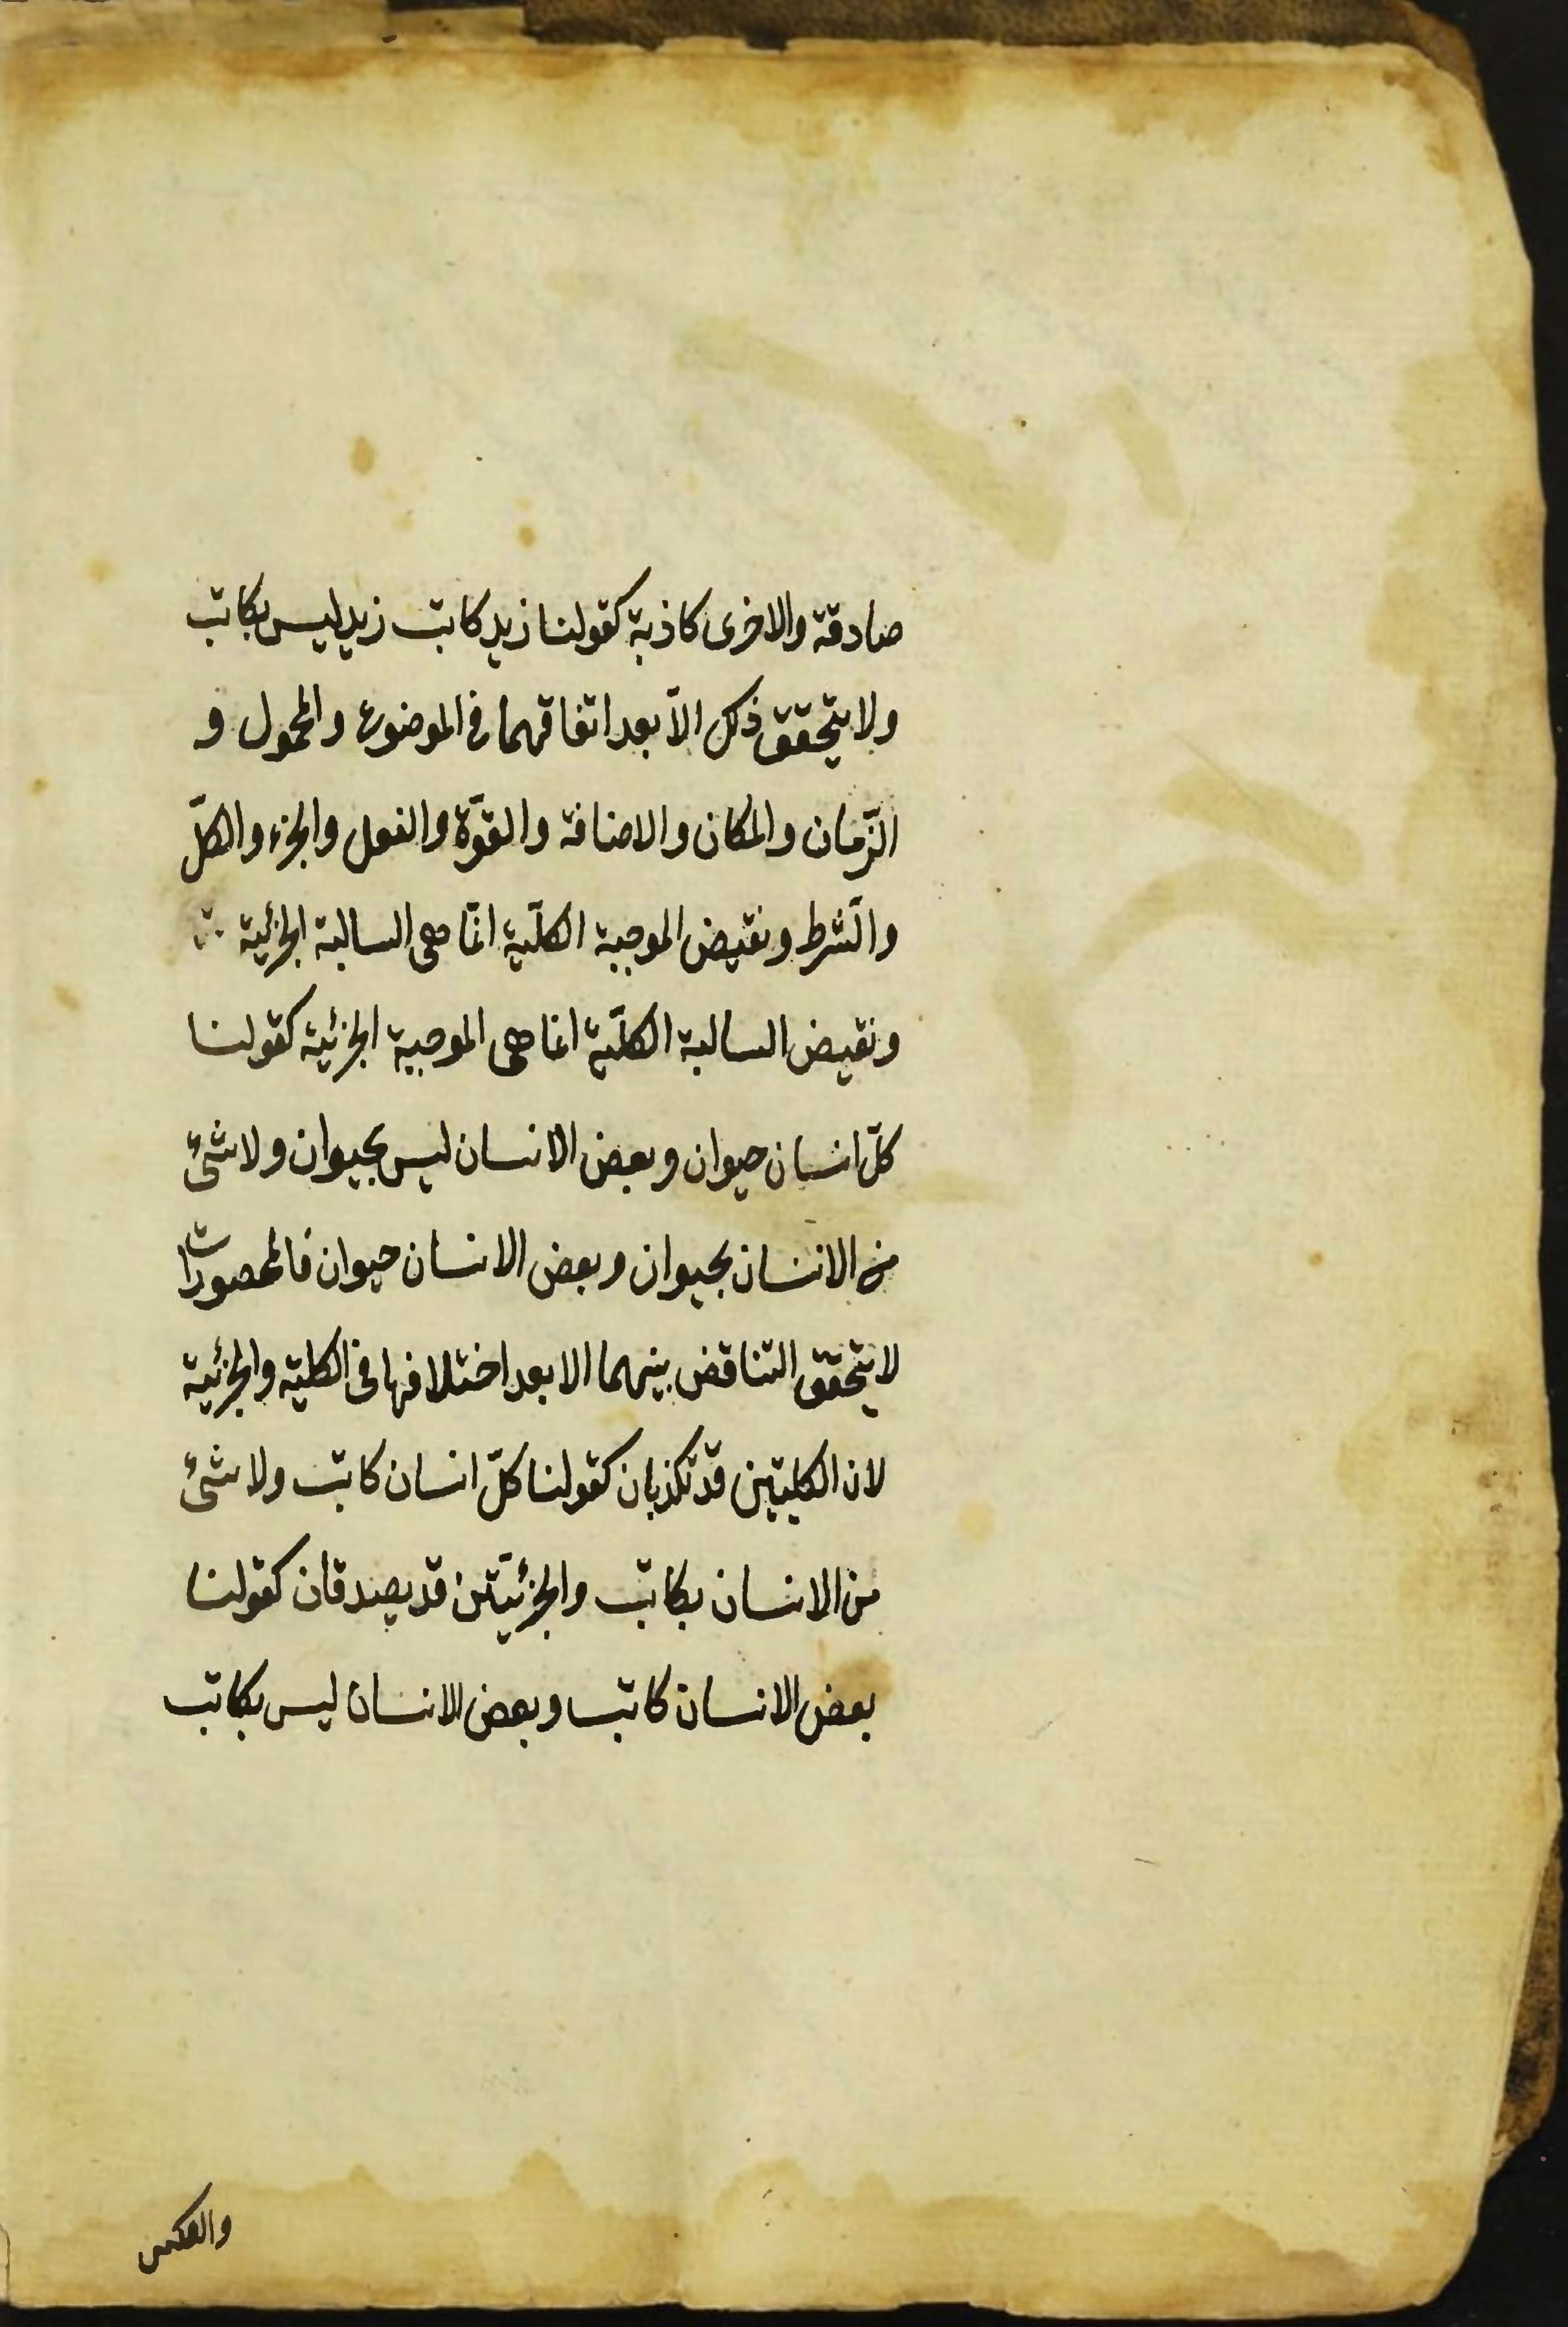 صادقة والاخرى كاذبة كقولنا زيد كاتب زيد ليس بكاتب
ولا يتحقق ذلك الاّ بعد اتفاقهما فى الموضوع والمحمول و
الزّمان والمكان والاضافة والقوّة والفعل والجزء والكلّ
والشّرط ونقيض الموجبة الكلّية انّما هى السالبة الجزئية
ونقيض السالبة الكلّية انما هى الموجبة الجزئية كقولنا
كلّ انسان حيوان وبعض الانسان ليس بحيوان ولا شئ
من الانسان بحيوان وبعض الانسان حيوان فالمحصورات
لا يتحقق التناقض بينهما الا بعد اختلافها فى الكلية والجزئية
لان الكليتين قد تكذبان كقولنا كلّ انسان كاتب ولا شئ
من الانسان بكاتب والجزئيّتين قد يصدقان كقولنا
بعض الانسان كاتب وبعض الانسان ليس بكاتب
والعكس